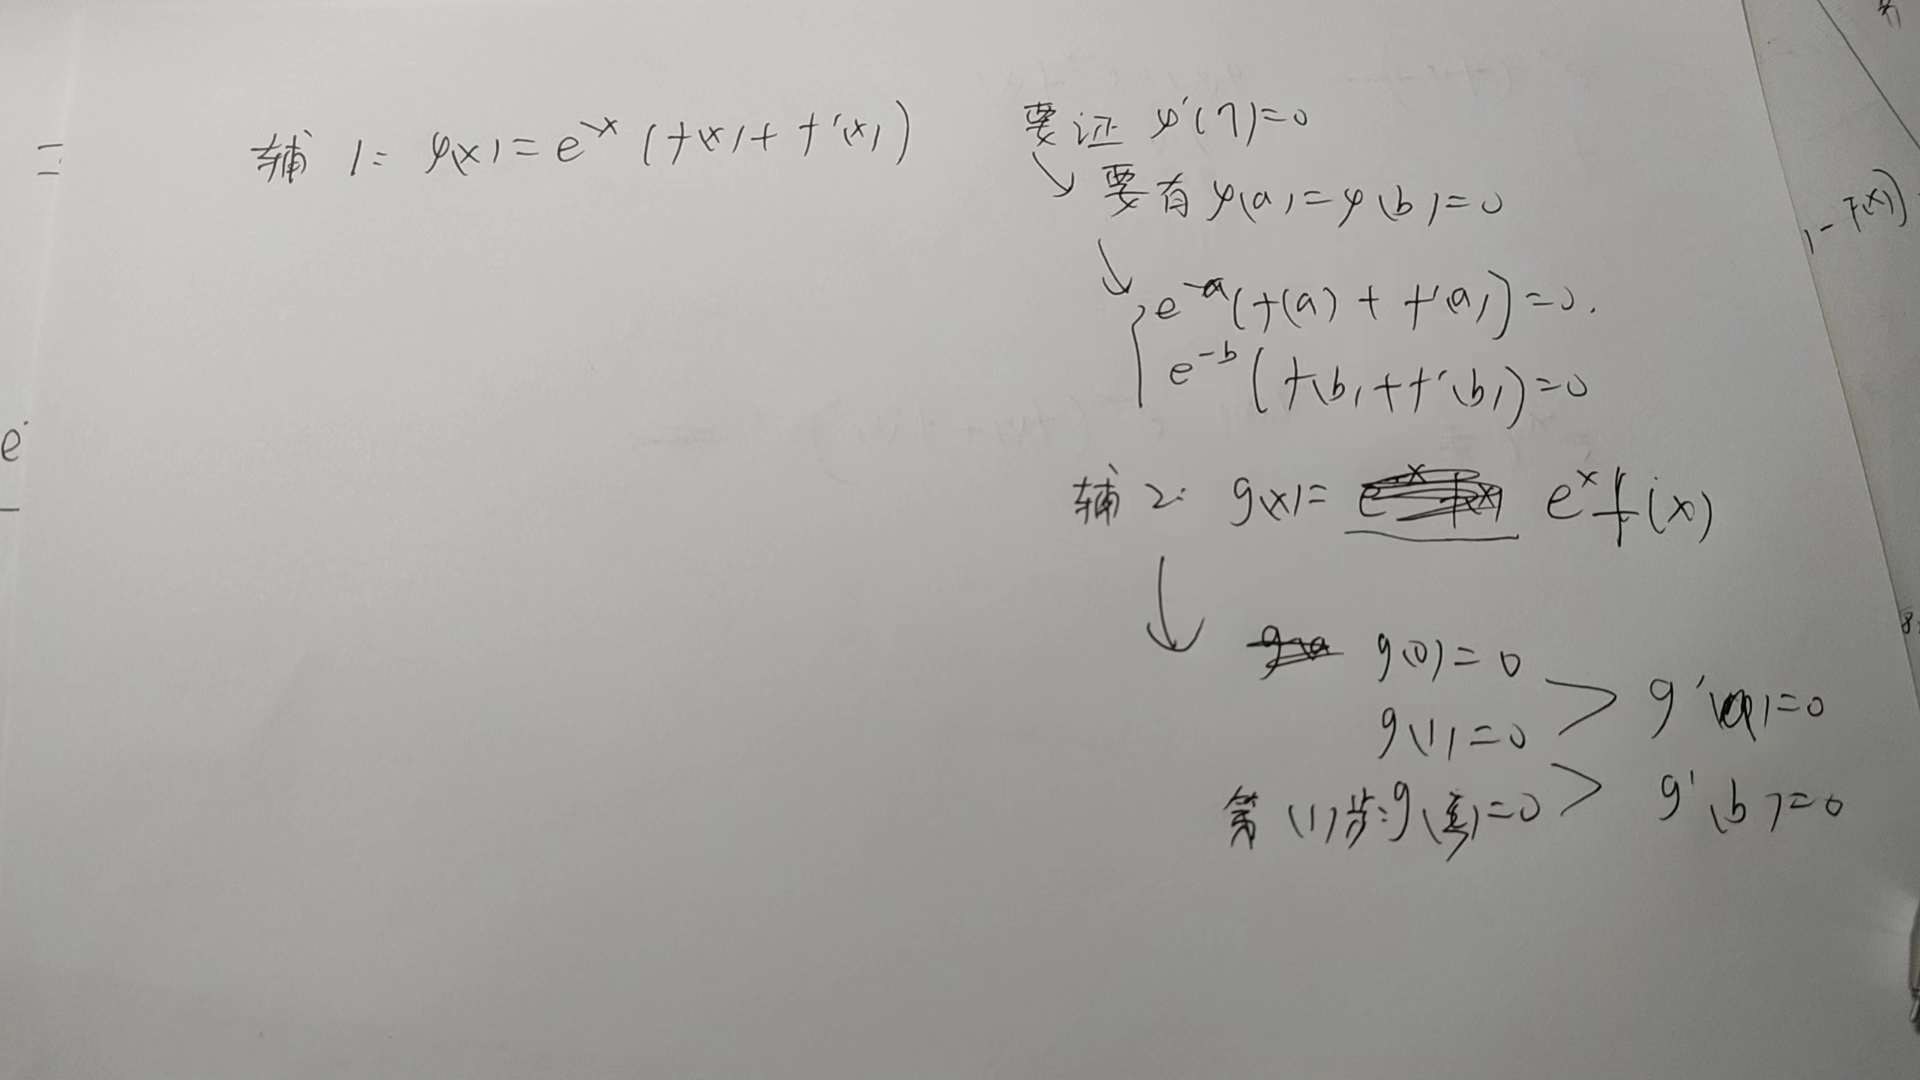 辅1: φ(x)=e^{-x}(f(x)+f'(x))
要证 φ'(η)=0
要有 φ(a)=φ(b)=0
e^{-a}(f(a)+f'(a))=0.
e^{-b}(f(b)+f'(b))=0
辅2: g(x)= e^x f(x)
g(0)=0
g'(a)=0
g(1)=0
第(1)步:g(ξ)=0
g'(b)=0
e
1-f(x))